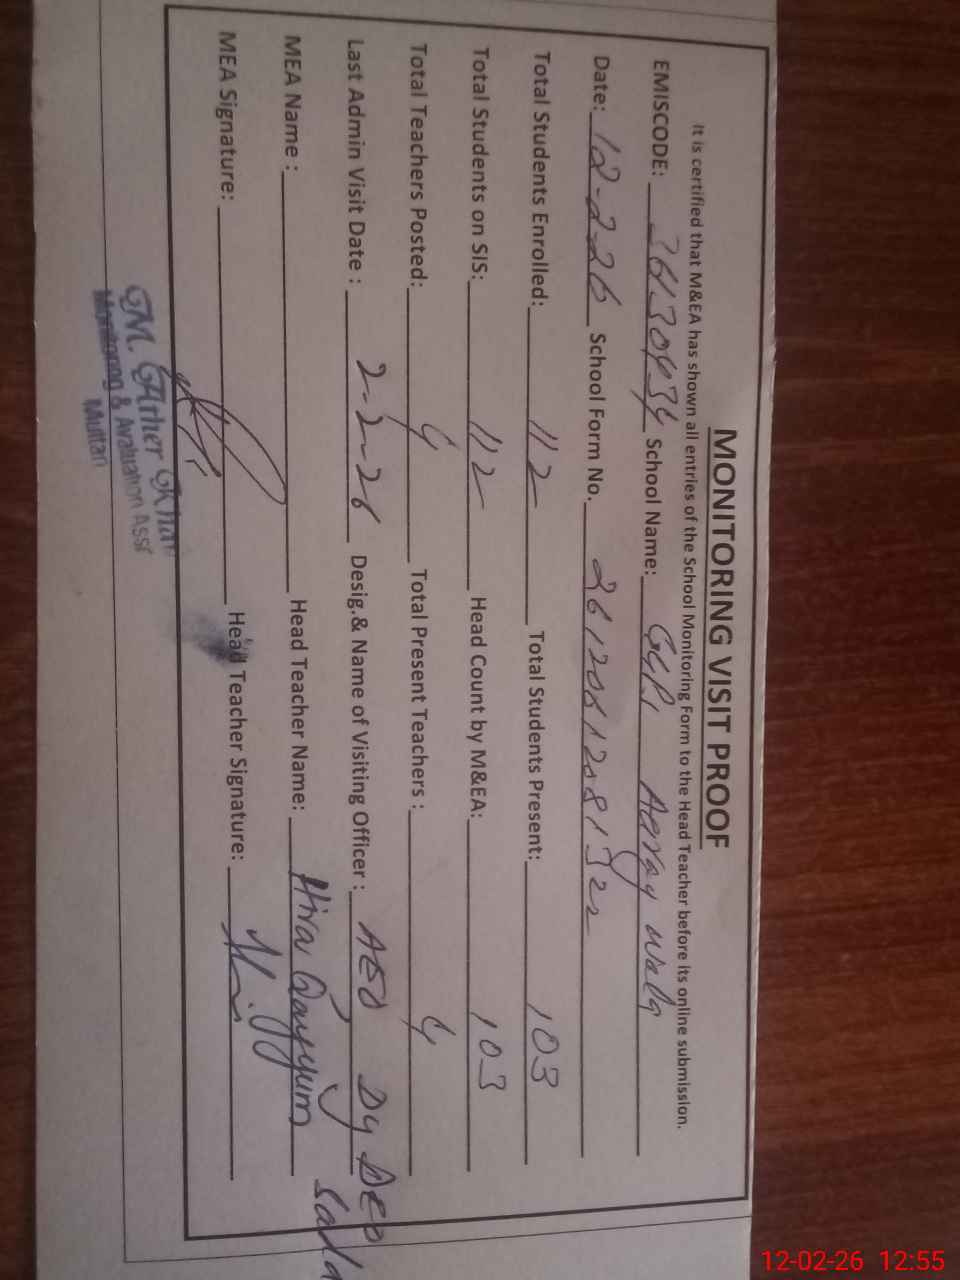 MONITORING VISIT PROOF
It is certified that M&EA has shown all entries of the School Monitoring Form to the Head Teacher before its online submission.
EMISCODE: 36130434 School Name: GGPS Aaray wala
Date: 12-2-26 School Form No.
Total Students Enrolled: 112 Total Students Present: 103
Total Students on SIS: 112 Head Count by M&EA: 103
Total Teachers Posted: 4 Total Present Teachers : 4
Last Admin Visit Date : 2-2-26 Desig.& Name of Visiting Officer : AEO Dy DEO
MEA Name : Head Teacher Name: Hira Qayyum
MEA Signature: Head Teacher Signature:
M. Ather Khan
Monitoring & Avaluation Asst
Multan
12-02-26 12:55